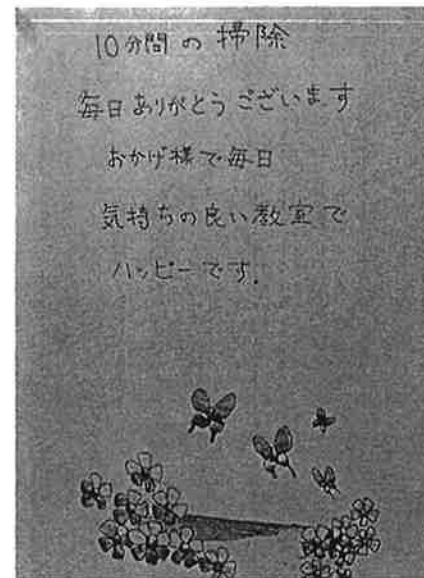 10分間の掃除
毎日ありがとうございます
おかげ様で毎日
気持ちの良い教室で
ハッピーです.